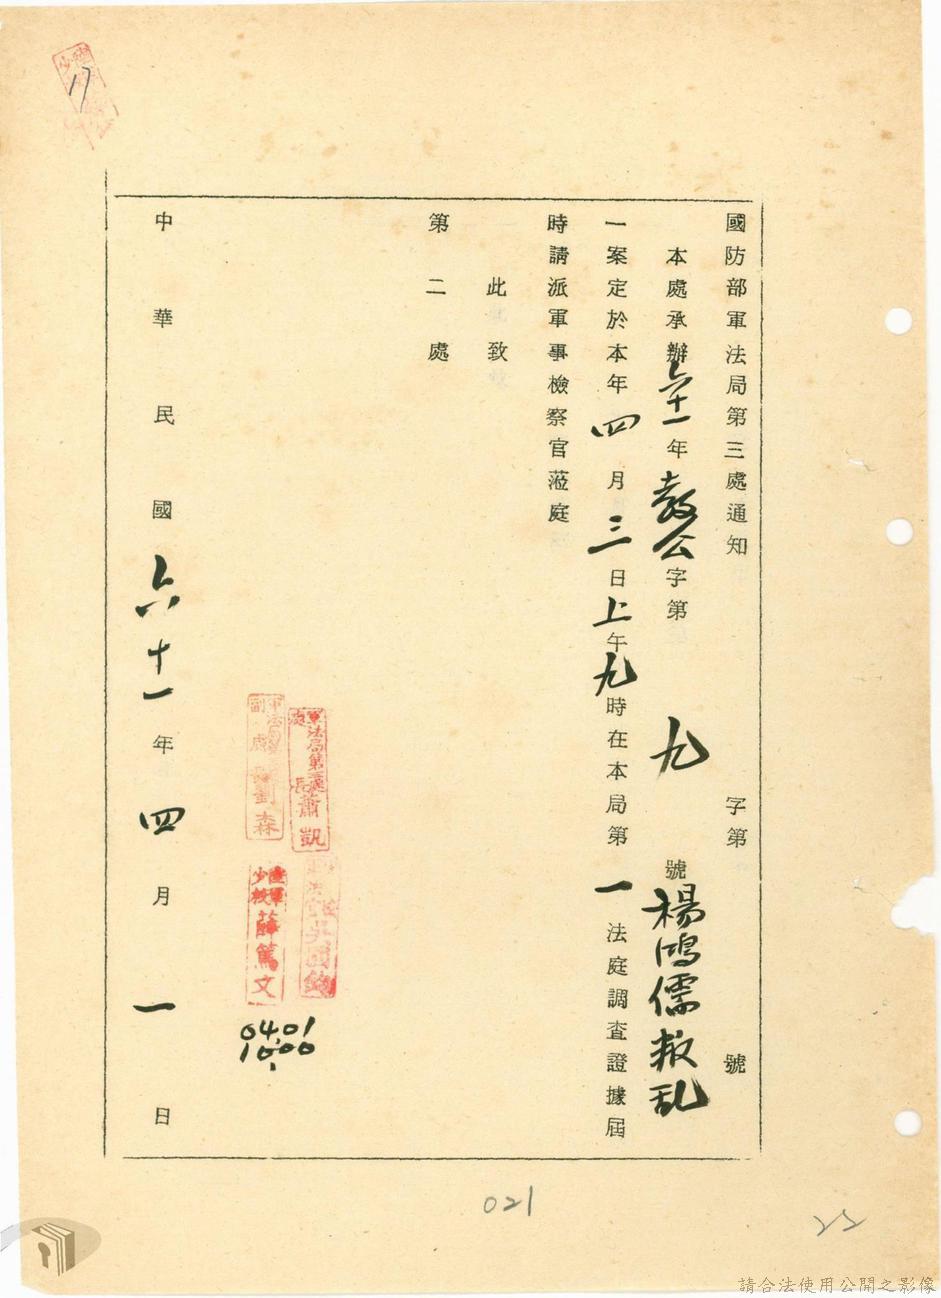 17
國防部軍法局第三處通知 字第 號
本處承辦六十一年教公字第九號楊鴻儒叛乱
一案定於本年四月三日上午九時在本局第一法庭調查證據屆
時請派軍事檢察官蒞庭
此致
第二處
軍法局第三處處長蕭凱
軍法局副處長劉森
陸軍少校薛篤文
0401
1000
中華民國六十一年四月一日
021
22
請合法使用公開之影像